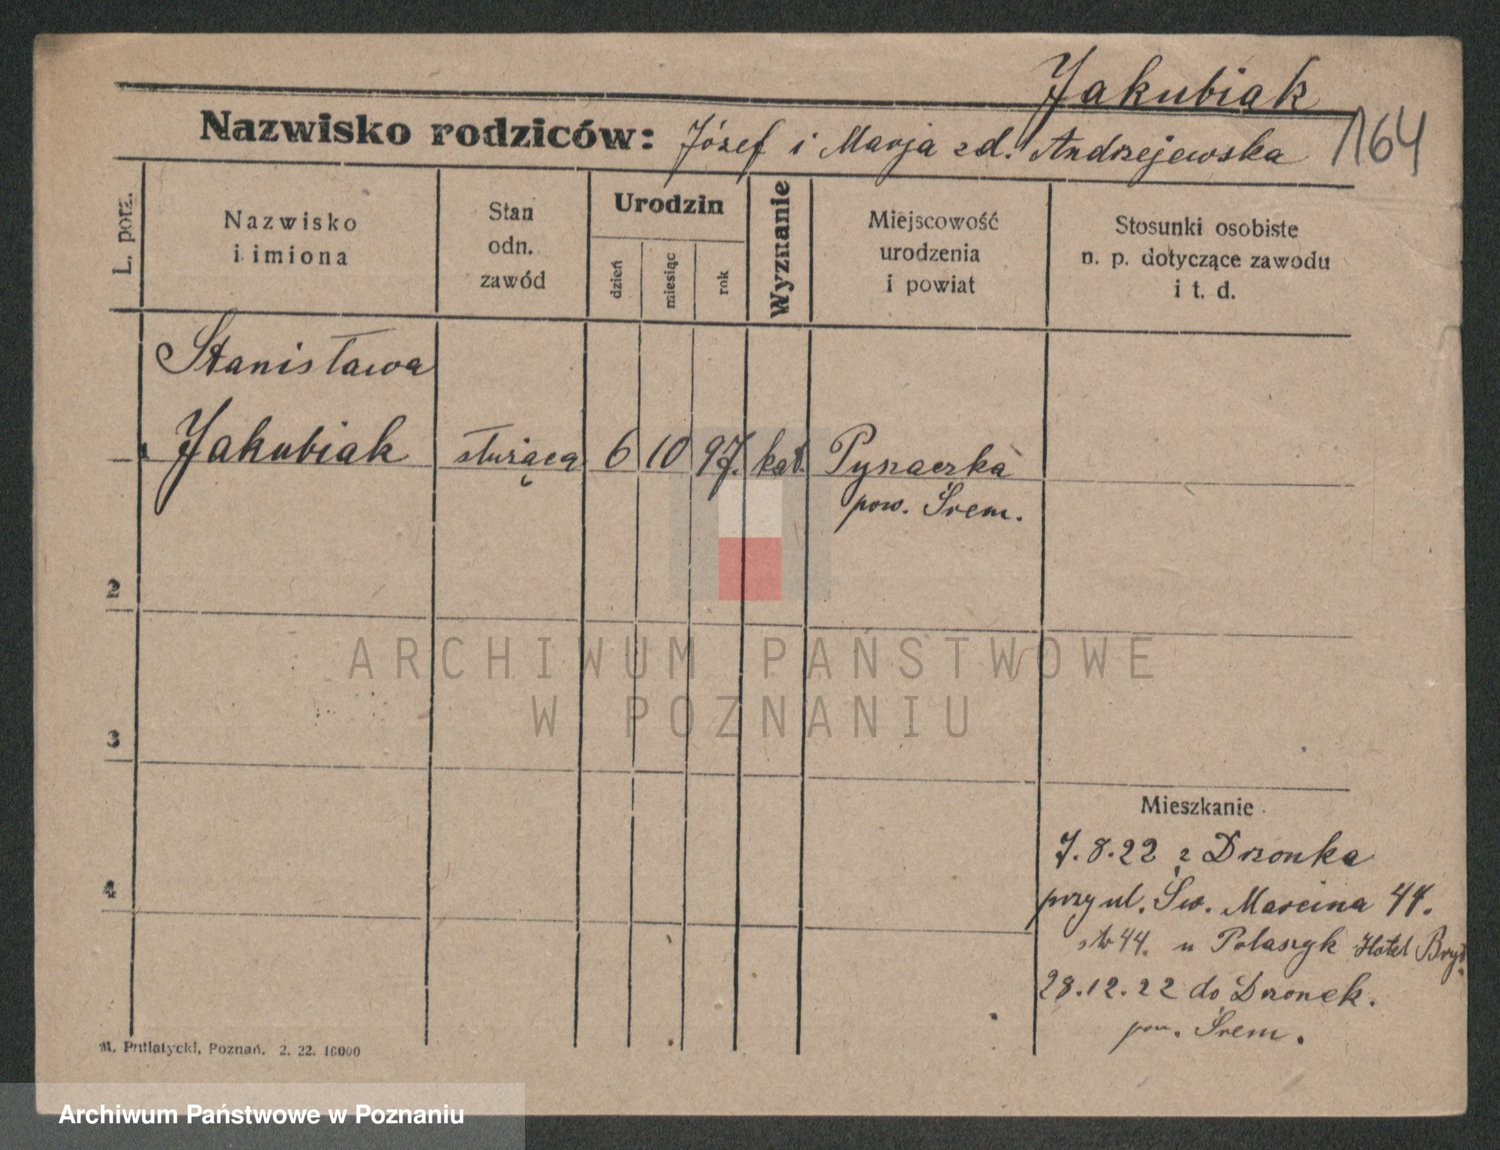 Jakubiak
Nazwisko rodziców: Józef i Marja zd. Andrzejewska 1164
L. porz.
Nazwisko
i imiona
Stan
odn.
zawód
Urodzin
dzień
miesiąc
rok
Wyznanie
Miejscowość
urodzenia
i powiat
Stosunki osobiste
n. p. dotyczące zawodu
i t. d.
Stanisława
Jakubiak służąca 6 10 97. kat. Pyszaczka
pow. Śrem.
2
ARCHIWUM PAŃSTWOWE
W POZNANIU
3
Mieszkanie
7.8.22 z Dronka
przy ul. Św. Marcina 44.
44. u Polaszyk Hotel Bryt.
28.12.22 do Dronek.
pow. Śrem.
4
M. Putiatycki, Poznań. 2. 22. 10000
Archiwum Państwowe w Poznaniu